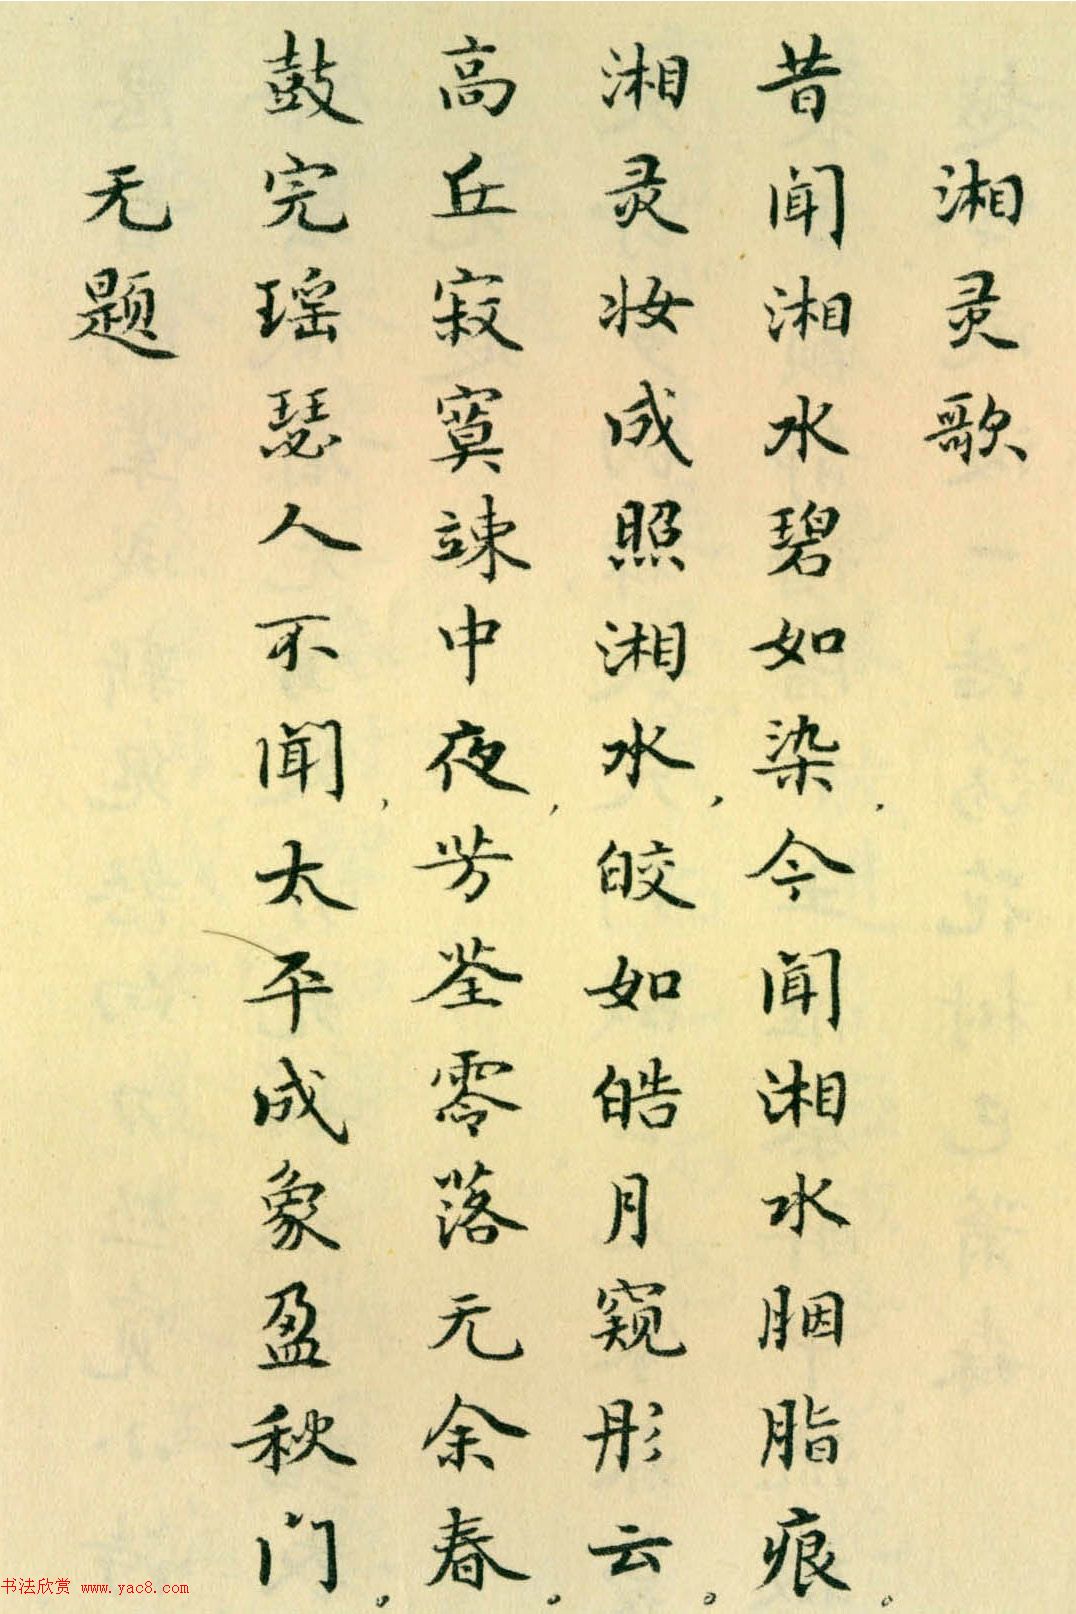 湘灵歌
昔闻湘水碧如染，今闻湘水胭脂痕。
湘灵妆成照湘水，皎如皓月窥彤云。
高丘寂寞竦中夜，芳荃零落无余春。
鼓完瑶瑟人不闻，太平成象盈秋门。
无题
书法欣赏 www.yac8.com